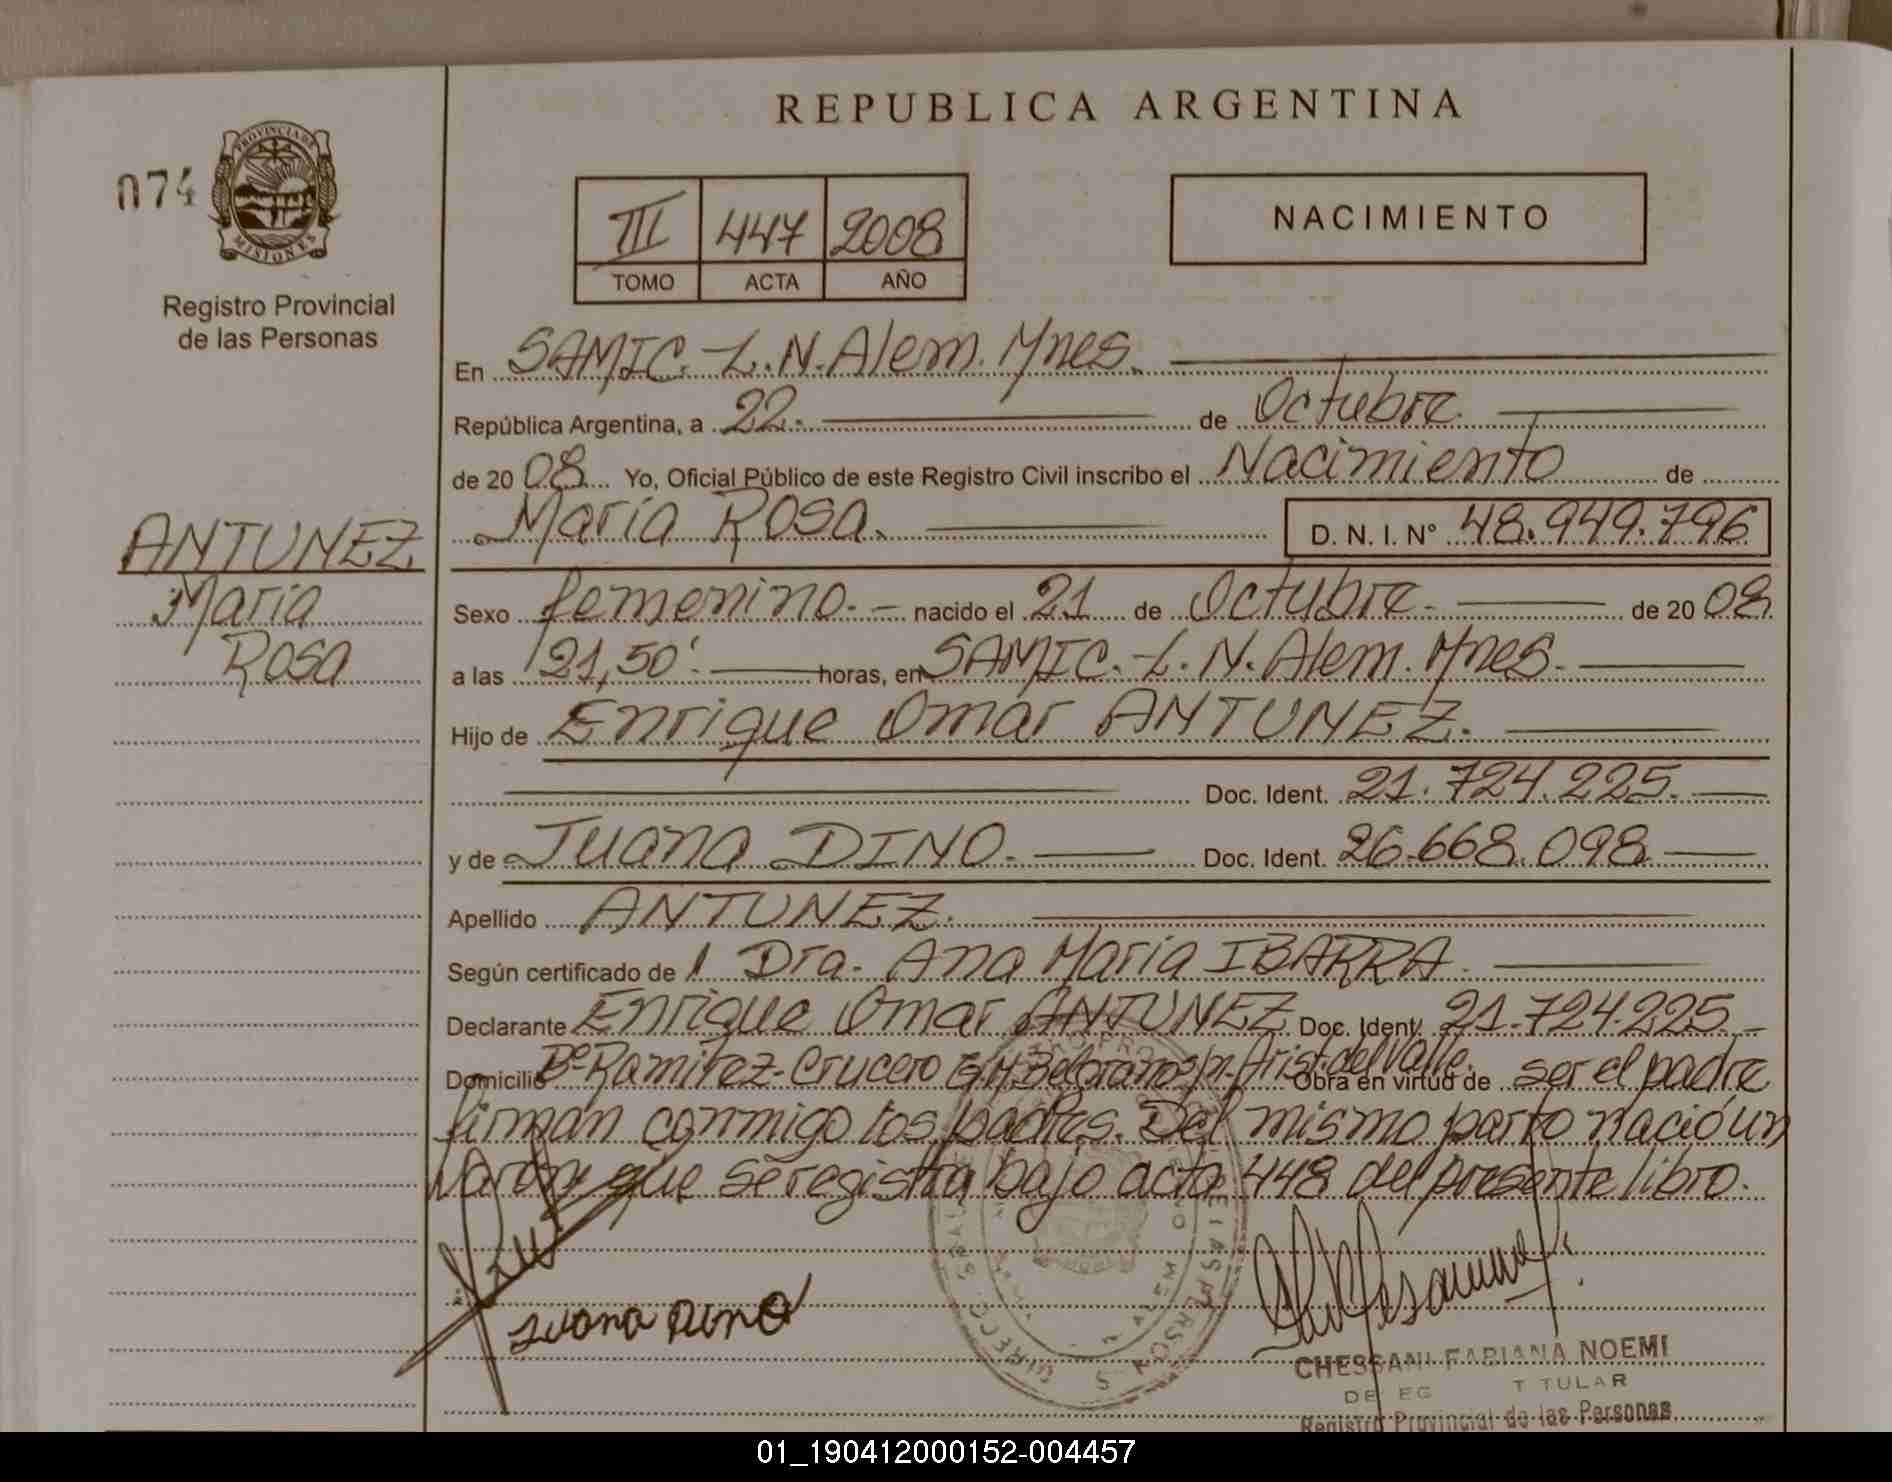 REPUBLICA ARGENTINA
074
PROVINCIA DE
MISIONES
Registro Provincial
de las Personas
III 447 2008
TOMO ACTA AÑO
NACIMIENTO
En SAMIC. L.N. Alem. Mnes.
República Argentina, a 22. de Octubre.
de 20 08 Yo, Oficial Público de este Registro Civil inscribo el Nacimiento de
María Rosa. D. N. I. N° 48.949.796
ANTUNEZ
María
Rosa
Sexo femenino. nacido el 21 de Octubre. de 20 08
a las 21,50' horas, en SAMIC. L. N. Alem. Mnes.
Hijo de Enrique Omar ANTUNEZ.
Doc. Ident. 21.724.225.
y de Juana DINO. Doc. Ident. 26.668.098
Apellido ANTUNEZ.
Según certificado de Dra. Ana María IBARRA.
Declarante Enrique Omar ANTUNEZ Doc. Ident. 21.724.225
Domicilio B° Ramirez. Crucero G. M. Belgrano s/n. Arist. del Valle. Obra en virtud de ser el padre
firman conmigo los padres. Del mismo parto nació un
varon que se registra bajo acta 448 del presente libro.
Juana Dino
CHESSANI FABIANA NOEMI
TITULAR
Registro Provincial de las Personas
01_190412000152-004457